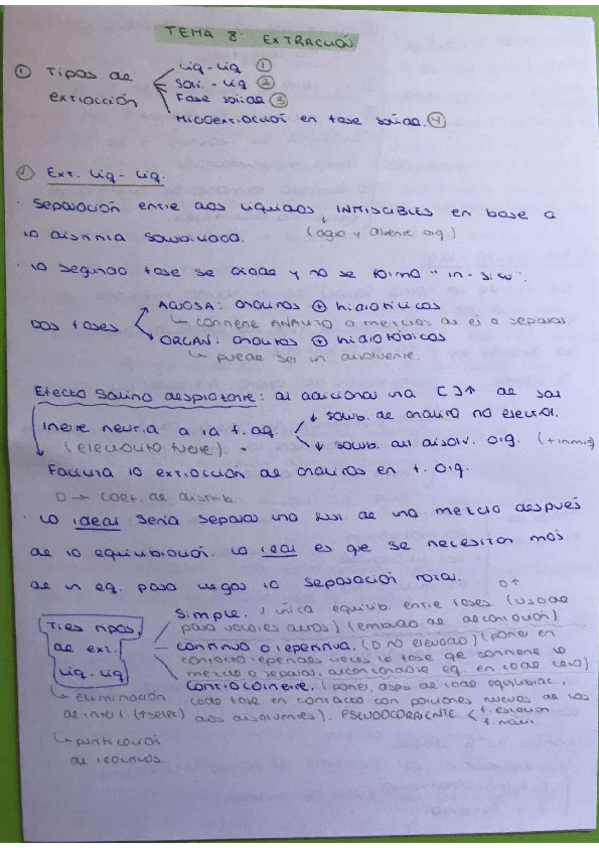 TEMA 8: EXTRACCIÓN
① Tipos de extracción
Liq-Liq ①
Sol-Liq ②
Fase sólida ③
Microextracción en fase sólida. ④
① Ext. Liq-Liq.
· Separación entre dos líquidos, INMISCIBLES en base a
(agua y disolvente org)
la distinta solubilidad.
· la segunda fase se añade y no se forma "in-situ".
Dos fases
ACUOSA: analitos ⊕ hidrofílicos
↳ contiene ANALITO o mezclas de ej a separar
ORGAN: analitos ⊕ hidrofóbicos
↳ puede ser un disolvente.
Efecto Salino desplazante: al adicionar una [ ]↑ de sal
inerte neutra a la f. aq.
(electrolito fuerte).
↓ solub. de analito no electrol.
↓ solub. del disolv. org. (+inmis)
Facilita la extracción de analitos en f. org.
D → coef. de distrib.
· Lo ideal sería separar una sust de una mezcla después
de la equilibración. Lo real es que se necesitan más
de un eq. para llegar la separación total.
D↑
Tres tipos de ext. liq-liq
Simple. 1 única equilib. entre fases (usada
para valores altos) (embudo de decantación)
CONTINUA O REPETITIVA. (D no elevado) (poner en
contacto repetidas veces la fase que contiene la
mezcla a separar, alcanzándose eq. en cada caso)
Contracorriente. (poner, desps de cada equilibrac,
cada fase en contacto con porciones nuevas de los
dos disolventes). PSEUDOCORRIENTE
f. estacion
f. móvil
↳ eliminación
de interf (↑selec)
↳ purificación
de reactivos.